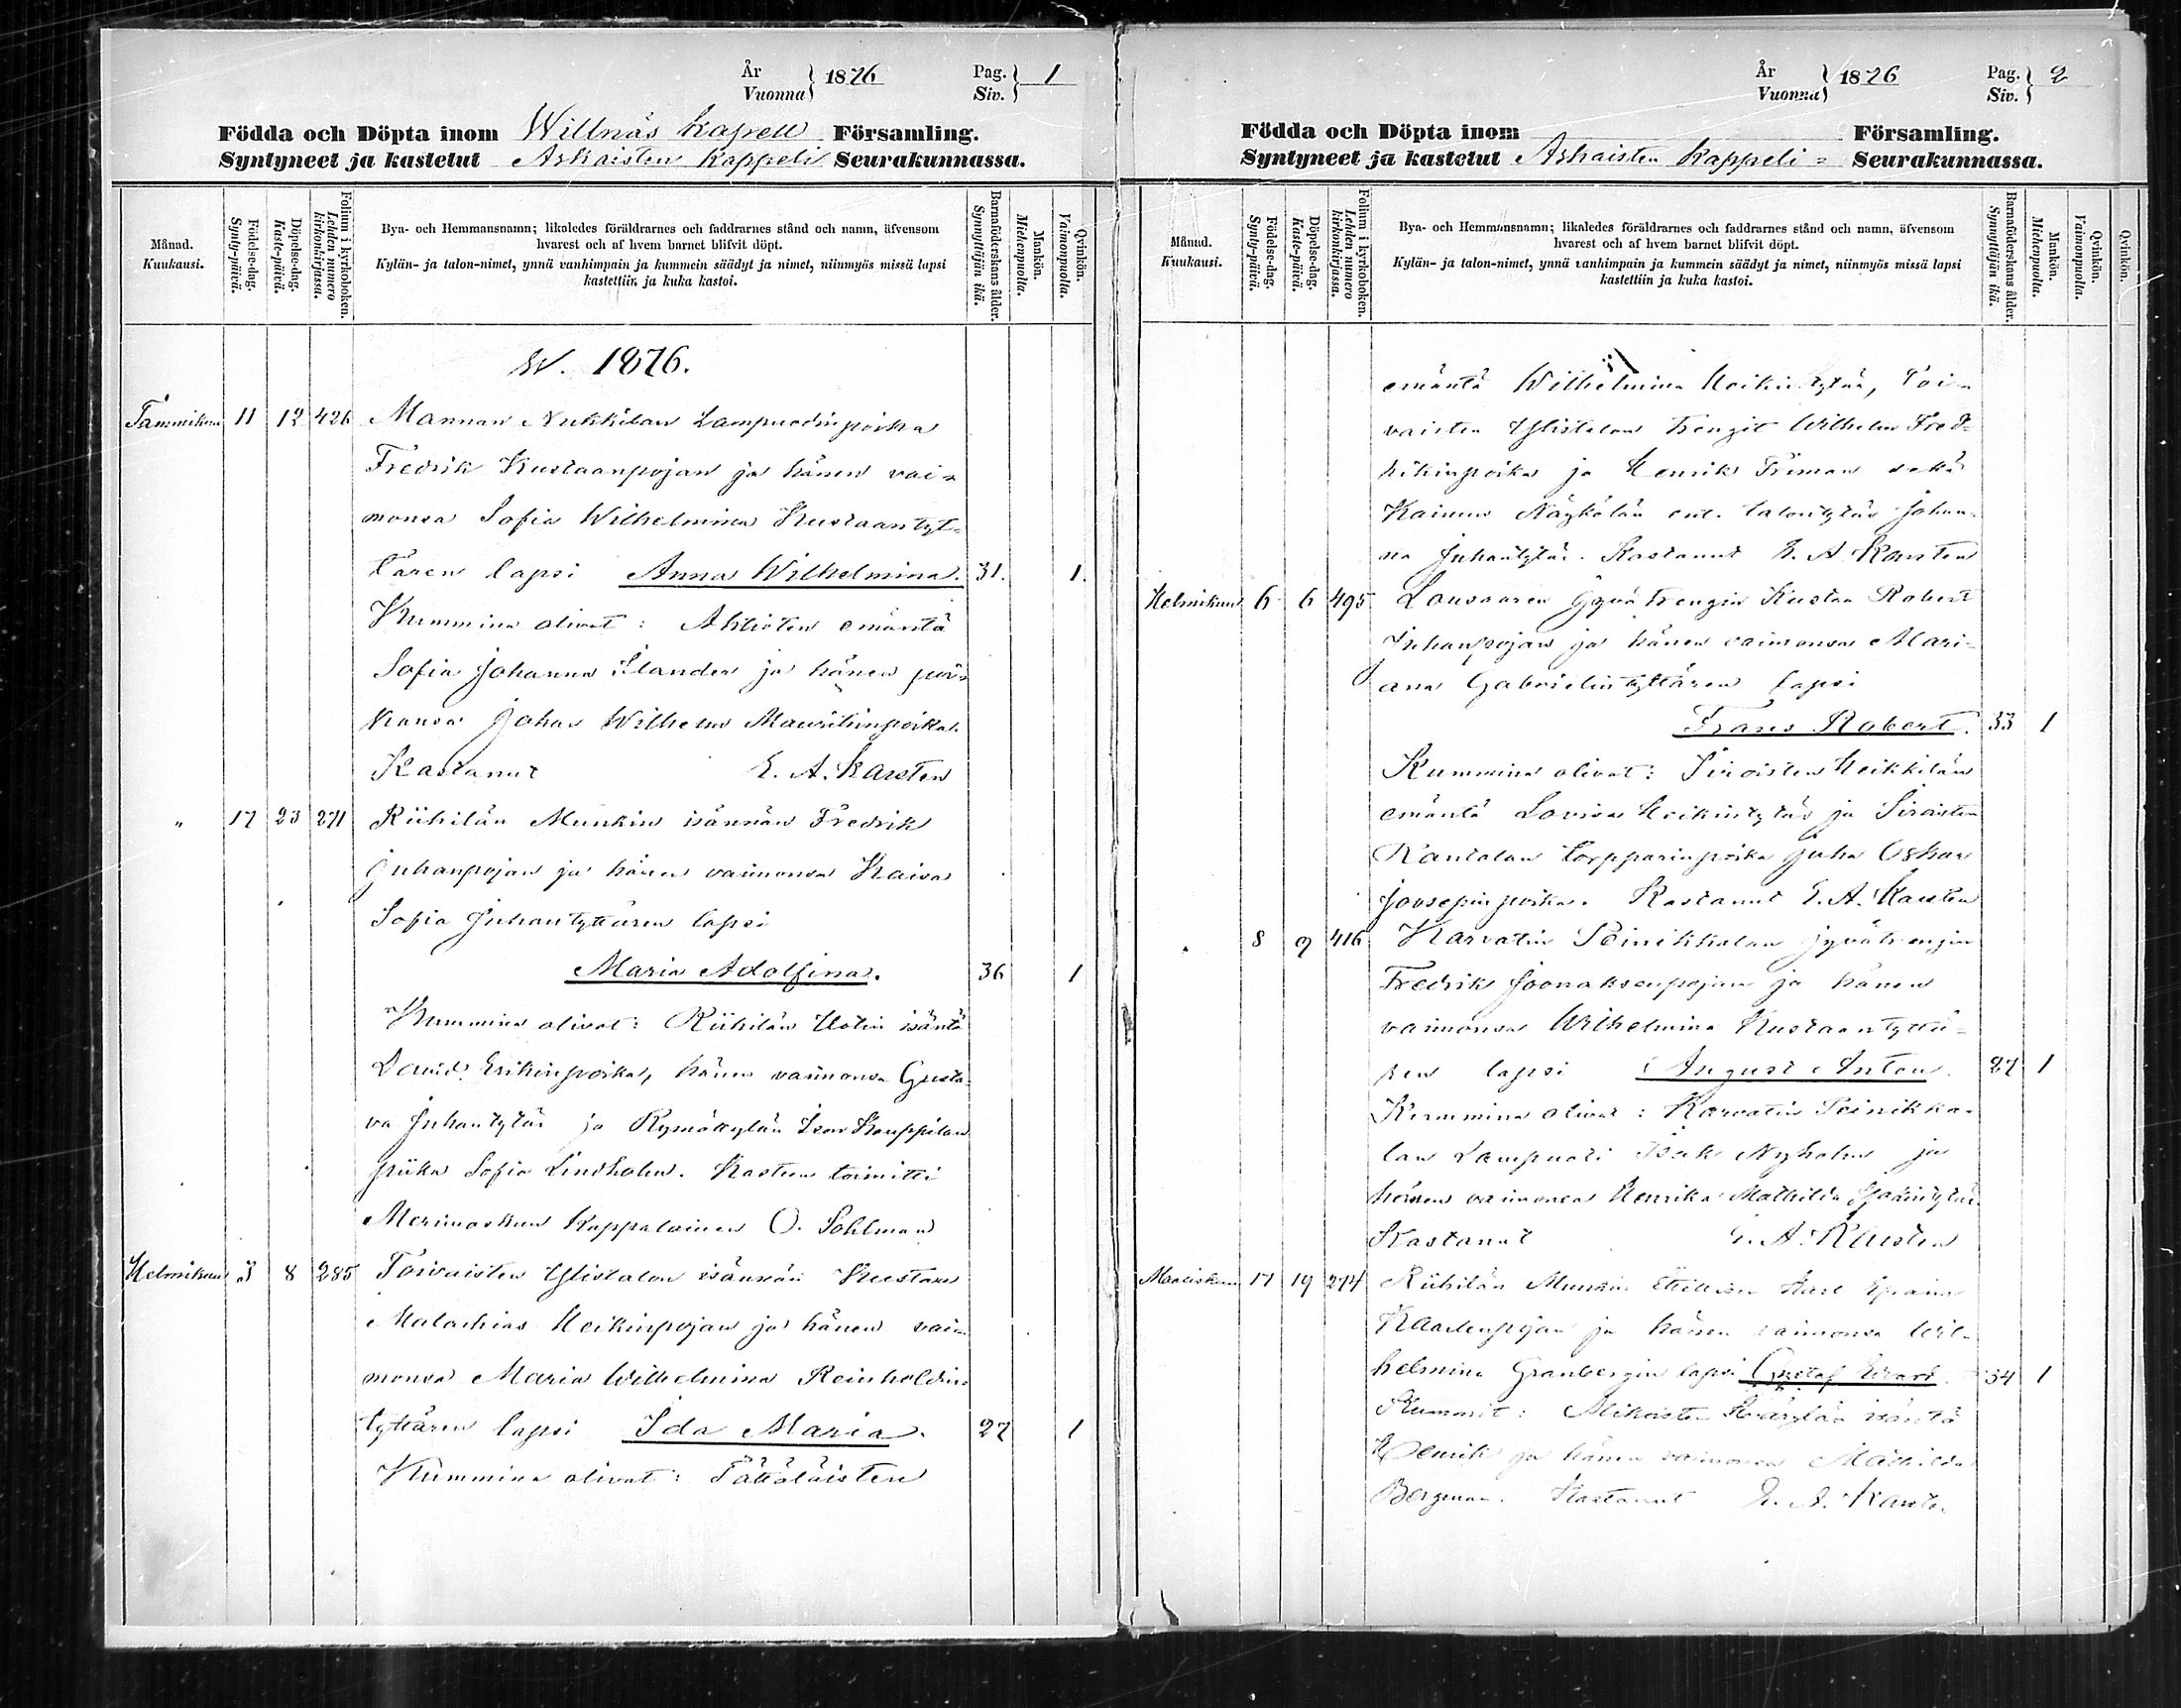 År
Vuonna } 1876 Pag.
Siv. } 1
Födda och Döpta inom Willnäs Kapell Församling.
Syntyneet ja kastetut Askaisten Kappeli Seurakunnassa.
Månad.
Kuukausi.
Födelse-dag.
Synty-päivä.
Döpelse-dag.
Kaste-päivä.
Folium i kyrkoboken.
Lehden numero
kirkonkirjassa.
Bya- och Hemmansnamn; likaledes föräldrarnes och faddrarnes stånd och namn, äfvensom
hvarest och af hvem barnet blifvit döpt.
Kylän- ja talon-nimet, ynnä vanhimpain ja kummein säädyt ja nimet, niinmyös missä lapsi
kastettiin ja kuka kastoi.
Barnaföderskans ålder.
Synnyttäjän ikä.
Mankön.
Miehenpuolta.
Qvinkön.
Vaimonpuolta.
W. 1876.
Tammikuu 11 12 426 Mannan Nukkilan Lampuodinpoika
Fredrik Kustaanpojan ja hänen vai-
monsa Sofia Wilhelmina Kustaantyt-
tären lapsi Anna Wilhelmina. 31. 1.
Kummina olivat: Ahtisten emäntä
Sofia Johanna Silander ja hänen poi-
kansa Johan Wilhelm Mauritinpoika.
Kastanut E. A. Karsten
" 17 23 271 Riihilän Munkin isännän Fredrik
Juhanpojan ja hänen vaimonsa Kaisa
Sofia Juhantyttären lapsi
Maria Adolfina. 36 1
Kummina olivat: Riihilän Uotin isäntä
David Erikinpoika, hänen vaimonsa Gusta-
va Juhantytär ja Rymättylän Ison Kauppilan
piika Sofia Lindholm. Kasteen toimitti
Merimaskun Kappalainen O. Sohlman
Helmikuu 3 8 285 Toivaisten Ylistalon isännän Kustaa
Malachias Heikinpojan ja hänen vai-
monsa Maria Wilhelmina Reinholdin-
tyttären lapsi Ida Maria. 27 1
Kummina olivat: Tättäläisten
År
Vuonna } 1876 Pag.
Siv. } 2
Födda och Döpta inom Församling.
Syntyneet ja kastetut Askaisten Kappeli- Seurakunnassa.
Månad.
Kuukausi.
Födelse-dag.
Synty-päivä.
Döpelse-dag.
Kaste-päivä.
Folium i kyrkoboken.
Lehden numero
kirkonkirjassa.
Bya- och Hemmansnamn; likaledes föräldrarnes och faddrarnes stånd och namn, äfvensom
hvarest och af hvem barnet blifvit döpt.
Kylän- ja talon-nimet, ynnä vanhimpain ja kummein säädyt ja nimet, niinmyös missä lapsi
kastettiin ja kuka kastoi.
Barnaföderskans ålder.
Synnyttäjän ikä.
Mankön.
Miehenpuolta.
Qvinkön.
Vaimonpuolta.
Qvinkön.
emäntä Wilhelmina Heikintytär, Toi-
vaisten Ylistalon Trengit Wilhelm Fred-
rikinpoika ja Henrik Friman sekä
Kainun Näykölän ent. talontytär Johan-
na Juhantytär. Kastanut E. A. Karsten
Helmikuu 6 6 495 Lousaaren Jyvätrengin Kustaa Robert
Juhanpojan ja hänen vaimonsa Mari-
ana Gabrielintyttären lapsi
Frans Robert. 33 1
Kummina olivat: Siroisten Heikkilän
emäntä Lovisa Heikintytär ja Siroisten
Rantalan Torpparinpoika Juha Oskar
Joosepinpoika. Kastanut E. A. Karsten
8 9 416 Karvatin Peinikkalan jyvätrengin
Fredrik Joonaksenpojan ja hänen
vaimonsa Wilhelmina Kustaantyttä-
ren lapsi August Anton. 27 1
Kummina olivat: Karvatin Peinikka-
lan Lampuoti Isak Nyholm ja
hänen vaimonsa Henrika Mathilda
Kastanut E. A. Karsten
Maaliskuu 17 19 274 Riihilän Munkin Karl Efraim
Kaarlenpojan ja hänen vaimonsa Wil-
helmina Granbergin lapsi Gustaf Edvard. 34 1
Kummit: isäntä
Henrik ja hänen vaimonsa Mathilda
Bergman. Kastanut E. A. Karsten